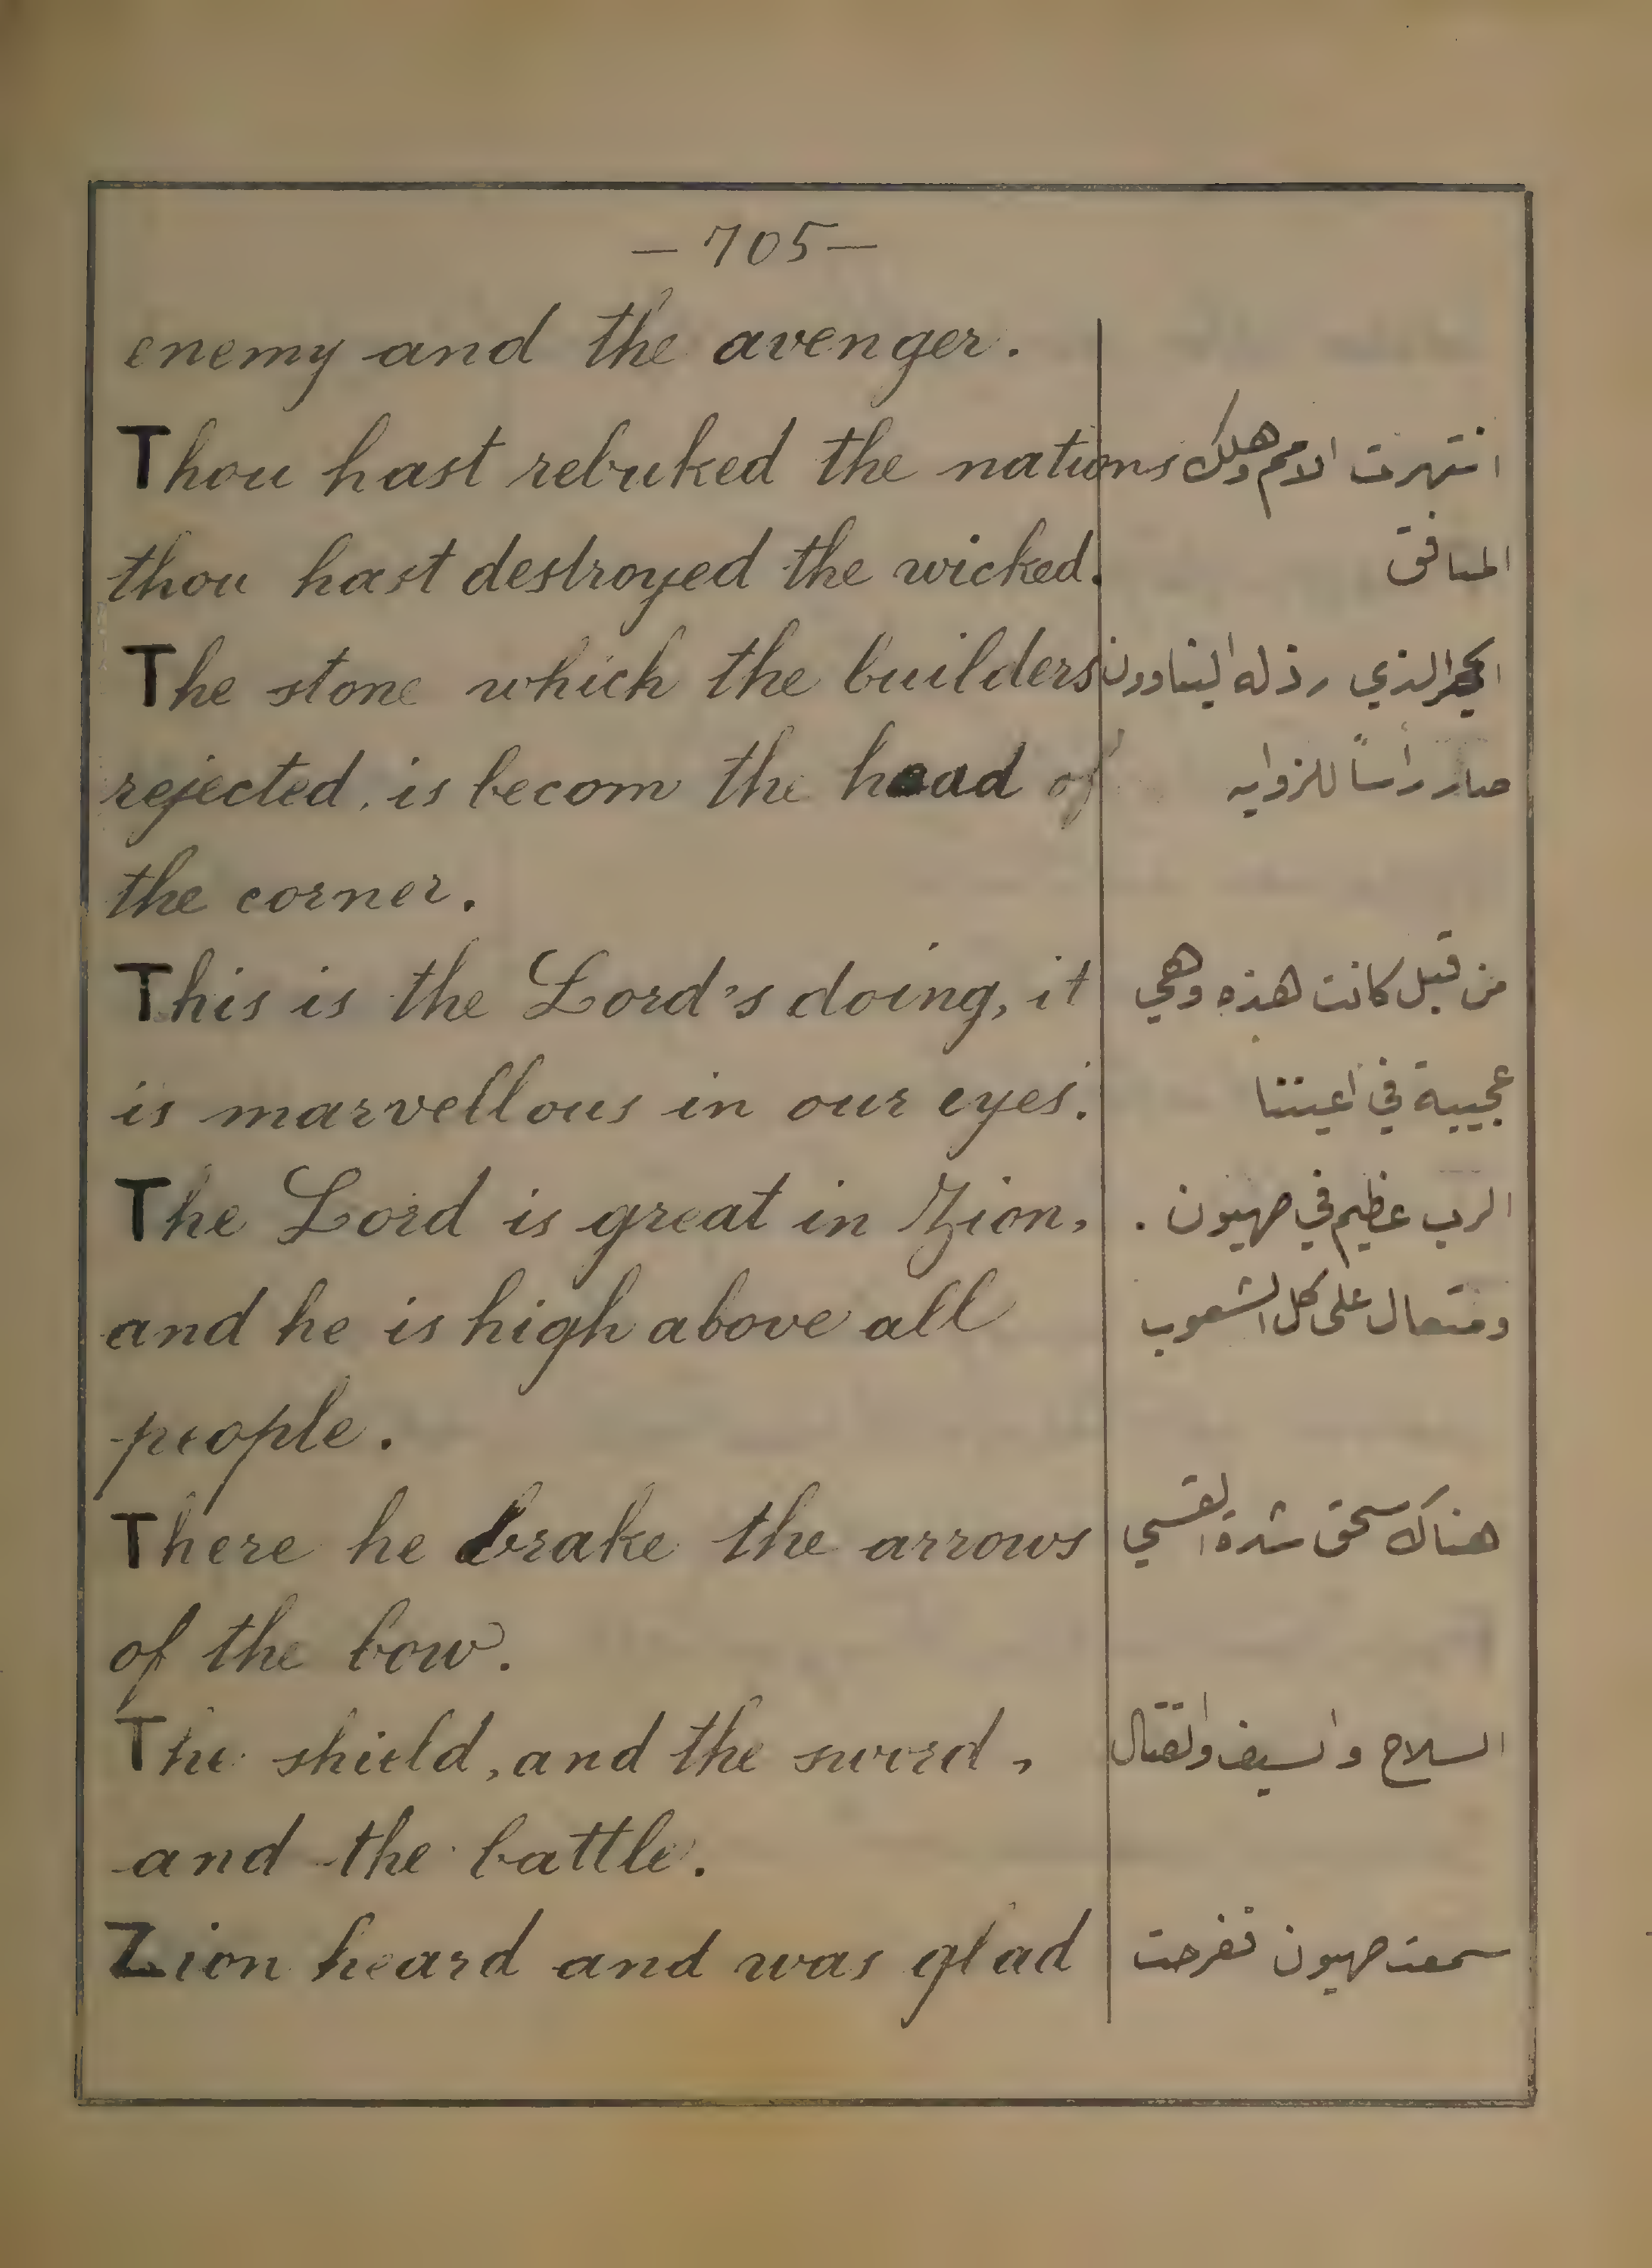 — 705 —
enemy and the avenger.
Thou hast rebuked the nations
انتهرت الامم وهلك
thou hast destroyed the wicked.
المنافق
The stone which the builders
الحجر الذي رذله البناوون
rejected, is becom the head of
صار رأساً للزوايه
the corner.
This is the Lord's doing, it
من قبل كانت هذه وهي
is marvellous in our eyes.
عجيبة في اعيننا
The Lord is great in Zion,
الرب عظيم في صهيون .
and he is high above all
ومتعال على كل الشعوب
people.
There he brake the arrows
هناك سحق شدة القسي
of the bow.
The shield, and the sword,
السلاح والسيف والقتال
and the battle.
Zion heard and was glad
سمعت صهيون ففرحت